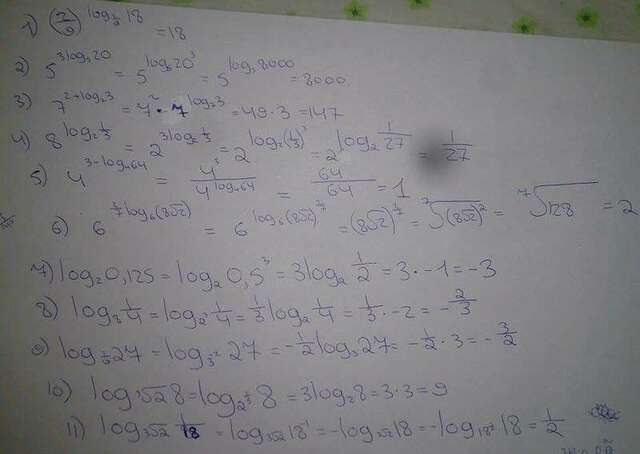 1) (2/9)^log_(2/9) 18 = 18
2) 5^(3log₅20) = 5^(log₅20³) = 5^(log₅8000) = 8000
3) 7^(2+log₇3) = 7² · 7^(log₇3) = 49·3 = 147
4) 8^(log₂ 1/3) = 2^(3log₂ 1/3) = 2^(log₂(1/3)³) = 2^(log₂ 1/27) = 1/27
5) 4^(3-log₄64) = 4³/4^(log₄64) = 64/64 = 1
6) 6^(2/7 log₆(8√2)) = 6^(log₆(8√2)^(2/7)) = (8√2)^(2/7) = ⁷√(8√2)² = ⁷√128 = 2
7) log₂0,125 = log₂0,5³ = 3log₂ 1/2 = 3·-1 = -3
8) log 1/4 = log 1/4 = 1/3 log₂ 1/4 = 1/3·-2 = -2/3
9) log_(1/9) 27 = log_(3⁻²) 27 = -1/2 log₃27 = -1/2·3 = -3/2
10) log_(³√2) 8 = log_(2^(1/3)) 8 = 3log₂8 = 3·3 = 9
11) log_(3√2) 1/18 = log_(3√2) 18 = -log 18 = -log 18 = 1/2